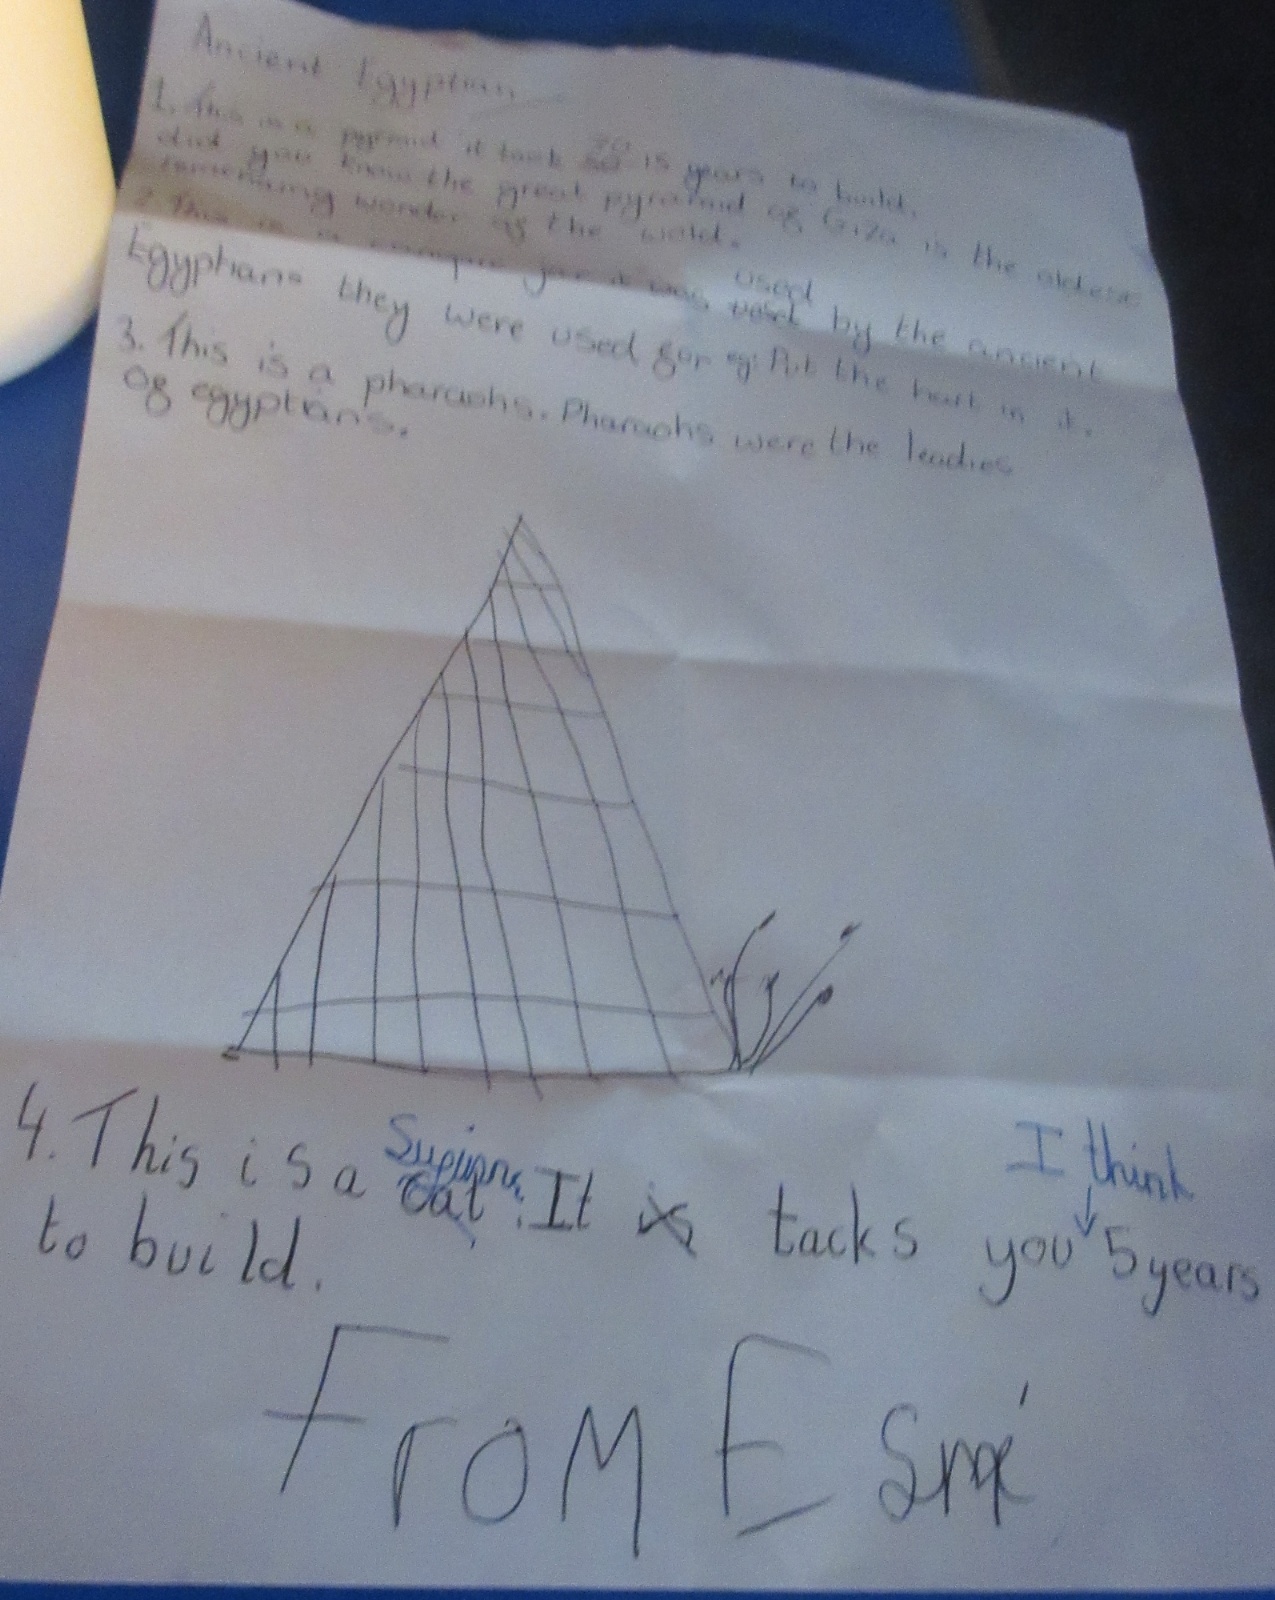 Ancient Egyptian
1. This is a pyramid it took 15 years to build.
did you know the great pyramid of Giza is the oldest
remaining wonder of the world.
2. This is a canopic jar it was used by the ancient
Egyptians they were used for eg: Put the hart in it.
3. This is a pharaohs. Pharaohs were the leadies
of egyptians.
4. This is a It tacks you I think 5 years
to build.
From Esmé